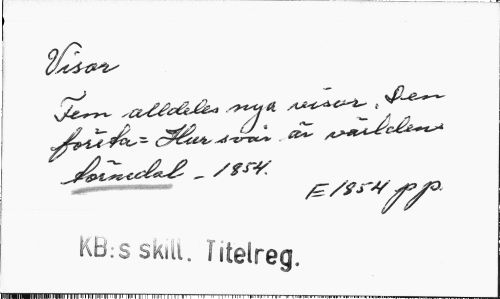 Visor
Fem alldeles nya visor. Den
första = Hur svår är världens
törnedal - 1854.
E 1854 pp.
KB:s skill. Titelreg.